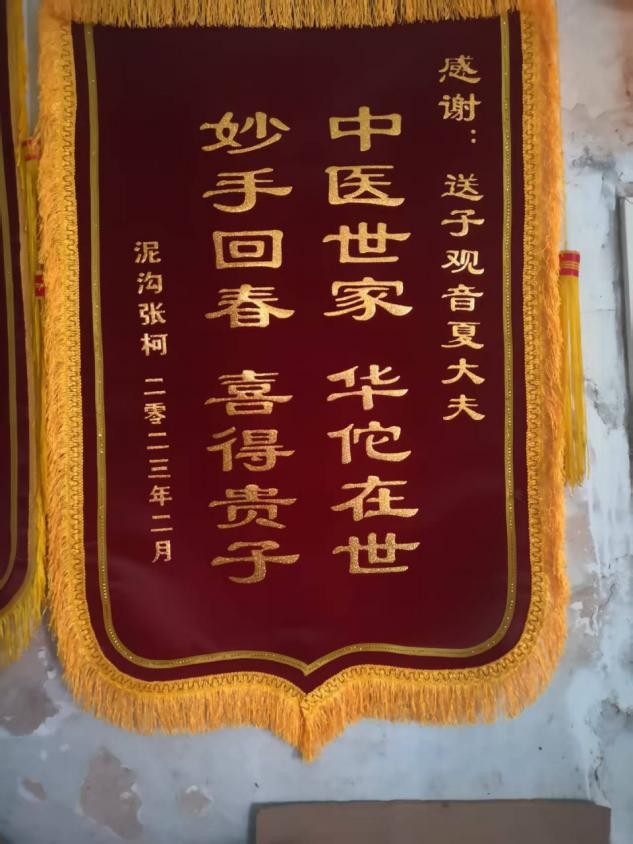 感谢：送子观音夏大夫
中医世家 华佗在世
妙手回春 喜得贵子
泥沟张柯 二零二三年二月